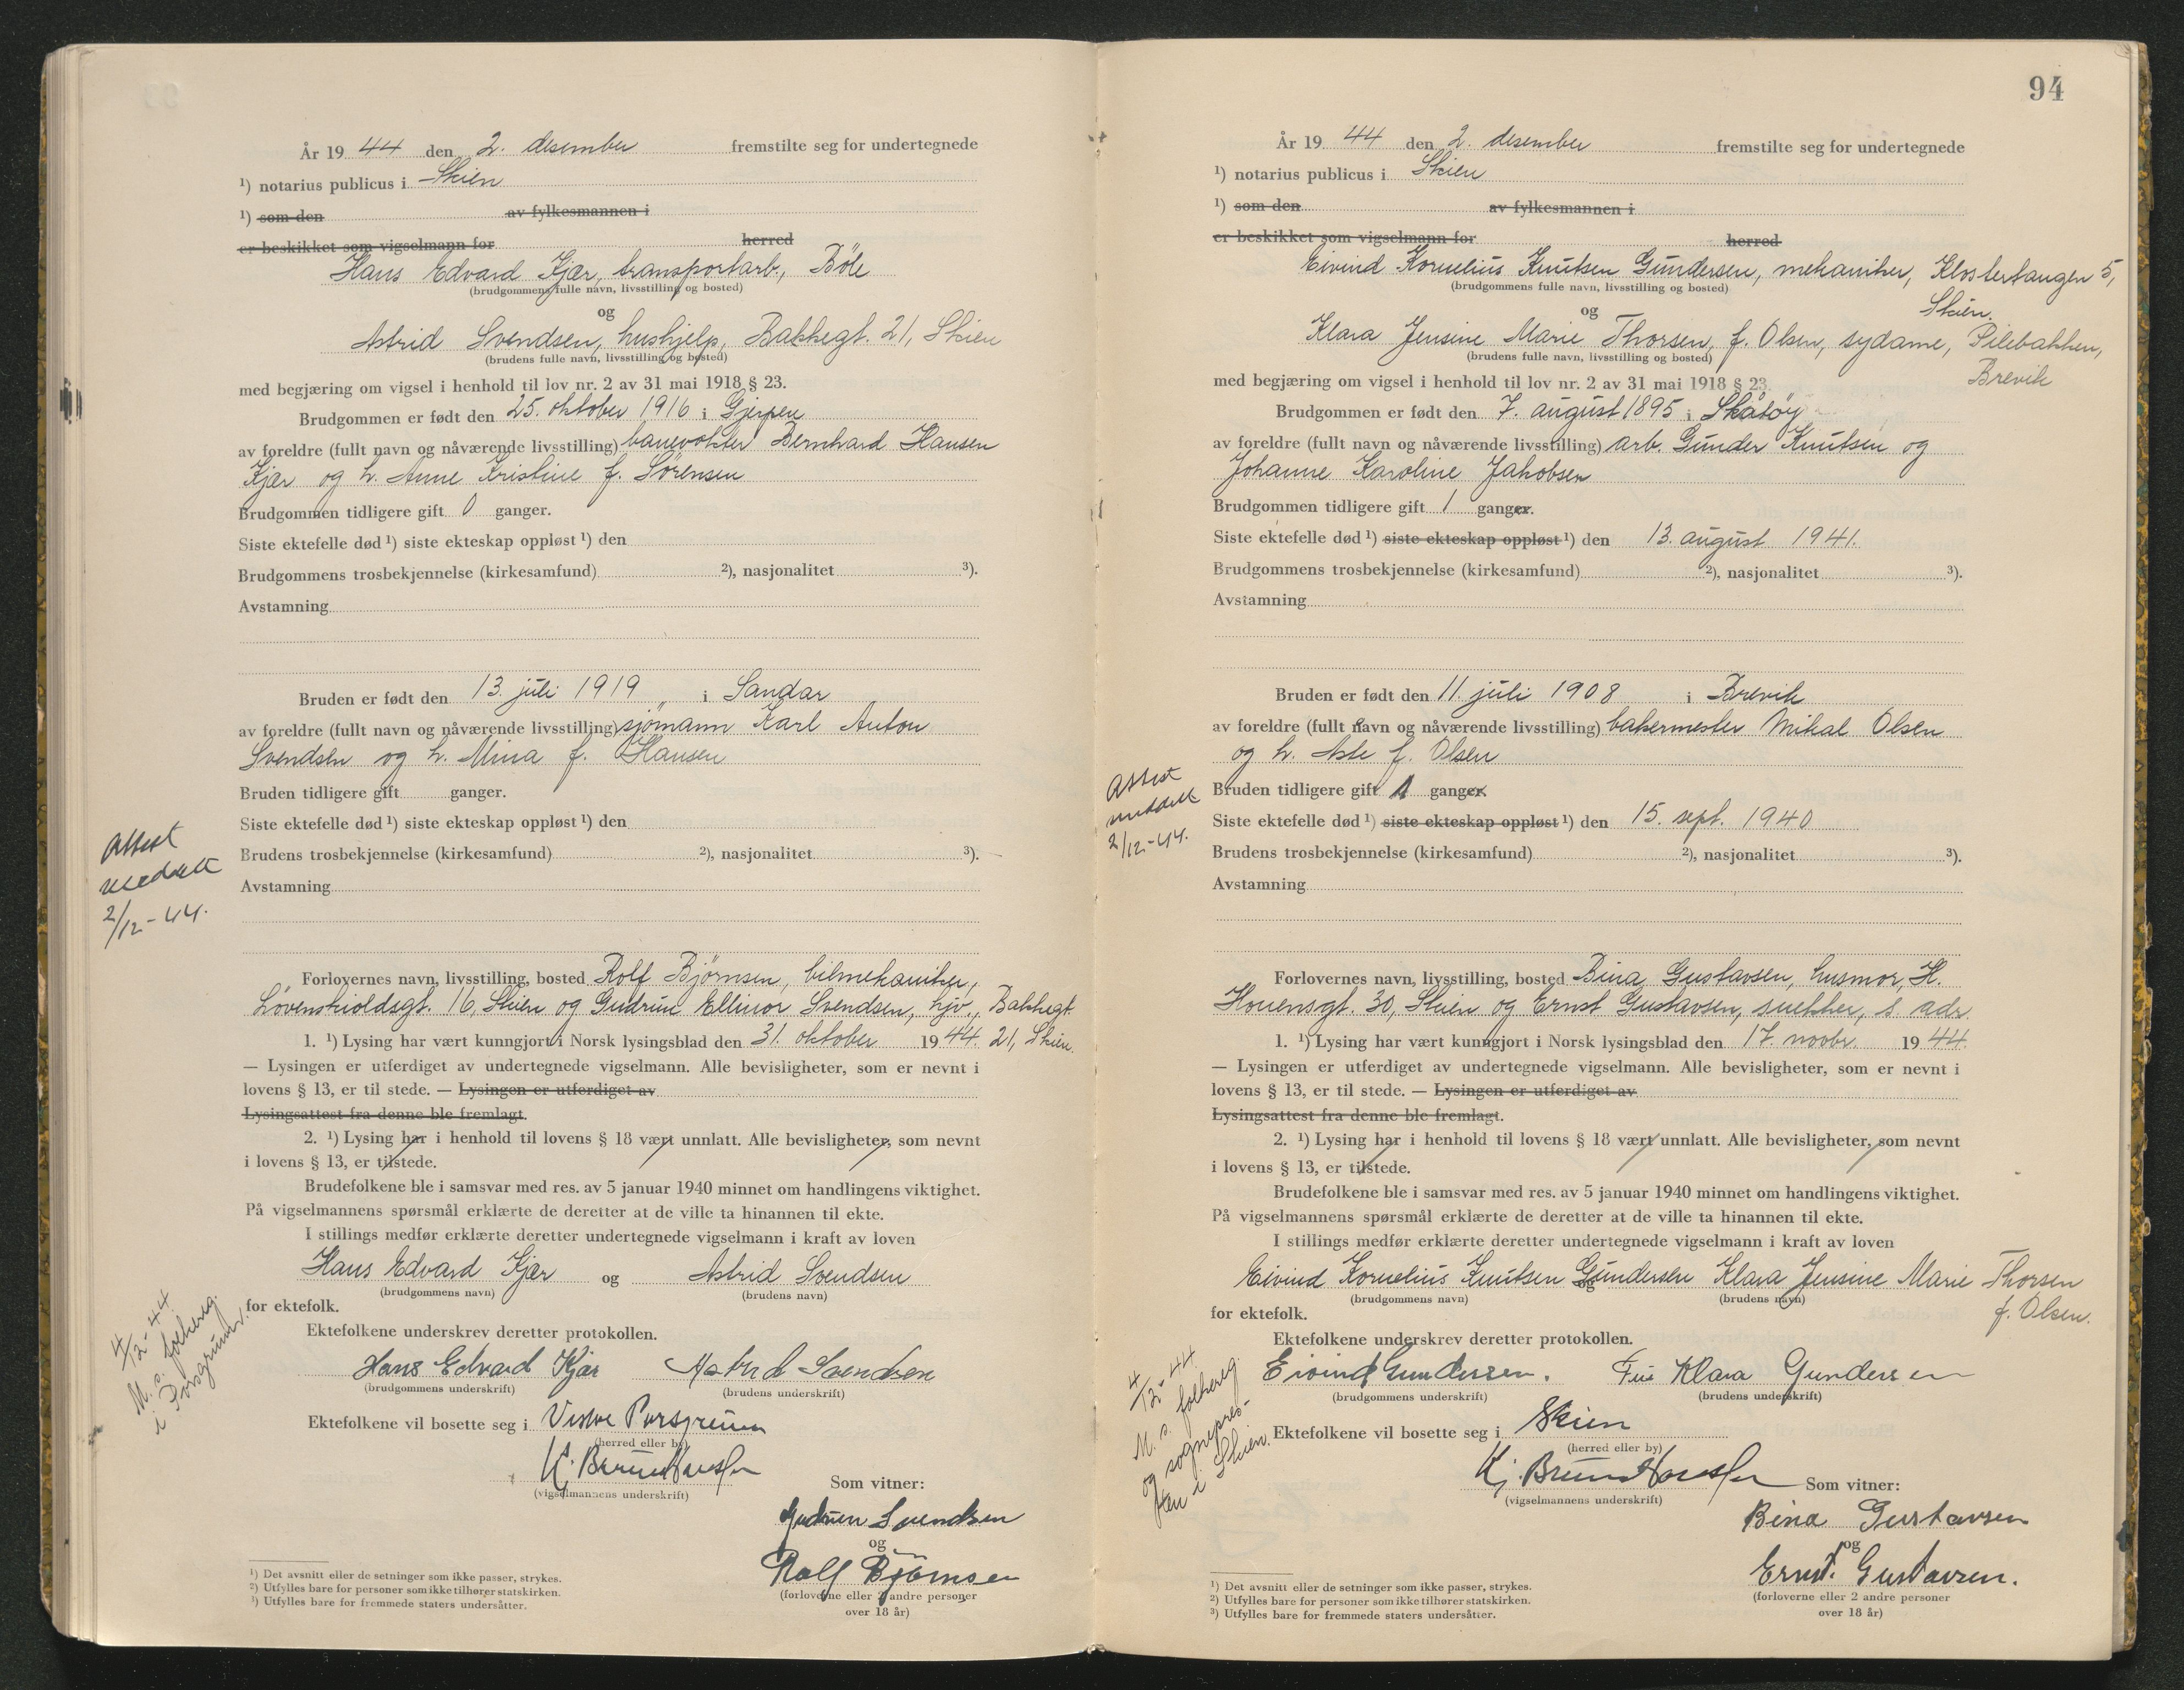 År 19 44 den 2. desember fremstilte seg for undertegnede
¹) notarius publicus i Skien
¹) som den av fylkesmannen i
er beskikket som vigselmann for herred
Hans Edvard Kjær, transportarb., Böle
(brudgommens fulle navn, livsstilling og bosted)
og
Astrid Svendsen, hushjelp, Bakkegt. 21, Skien
(brudens fulle navn, livsstilling og bosted)
med begjæring om vigsel i henhold til lov nr. 2 av 31 mai 1918 § 23.
Brudgommen er født den 25. oktober 1916 i Gjerpen
av foreldre (fullt navn og nåværende livsstilling) banevokter Bernhard Hansen
Kjær og h. Anne Kristine f. Sörensen
Brudgommen tidligere gift 0 ganger.
Siste ektefelle død ¹) siste ekteskap oppløst ¹) den
Brudgommens trosbekjennelse (kirkesamfund) ²), nasjonalitet ³).
Avstamning
Bruden er født den 13. juli 1919 i Sandar
av foreldre (fullt navn og nåværende livsstilling) sjömann Karl Anton
Svendsen og h. Mina f. Hansen
Bruden tidligere gift ganger.
Siste ektefelle død ¹) siste ekteskap oppløst ¹) den
Brudens trosbekjennelse (kirkesamfund) ²), nasjonalitet ³).
Avstamning
Attest
meddelt
2/12-44.
Forlovernes navn, livsstilling, bosted Rolf Björnsen, bilmekaniker,
Lövenskioldsgt. 16, Skien og Gudrun Ellinor Svendsen, hjv., Bakkegt
1. ¹) Lysing har vært kunngjort i Norsk lysingsblad den 31. oktober 19 44. 21, Skien.
— Lysingen er utferdiget av undertegnede vigselmann. Alle bevisligheter, som er nevnt i
lovens § 13, er til stede. — Lysingen er utferdiget av
Lysingsattest fra denne ble fremlagt.
2. ¹) Lysing har i henhold til lovens § 18 vært unnlatt. Alle bevisligheter, som nevnt
i lovens § 13, er tilstede.
Brudefolkene ble i samsvar med res. av 5 januar 1940 minnet om handlingens viktighet.
På vigselmannens spørsmål erklærte de deretter at de ville ta hinannen til ekte.
I stillings medfør erklærte deretter undertegnede vigselmann i kraft av loven
Hans Edvard Kjær og Astrid Svendsen
(brudgommens navn) (brudens navn)
for ektefolk.
Ektefolkene underskrev deretter protokollen.
Hans Edvard Kjær Astrid Svendsen
(brudgommens underskrift) (brudens underskrift)
Ektefolkene vil bosette seg i Vestre Porsgrunn
(herred eller by)
Kj. Bruun Hanssen
(vigselmannens underskrift)
Som vitner:
Gudrun Svendsen
og
Rolf Björnsen
(forloverne eller 2 andre personer
over 18 år)
4/12-44
M. s. folkereg.
i Porsgrunn.
¹) Det avsnitt eller de setninger som ikke passer, strykes.
²) Utfylles bare for personer som ikke tilhører statskirken.
³) Utfylles bare for fremmede staters undersåtter.
94
År 19 44 den 2. desember fremstilte seg for undertegnede
¹) notarius publicus i Skien
¹) som den av fylkesmannen i
er beskikket som vigselmann for herred
Eivind Kornelius Knutsen Gundersen, mekaniker, Klostertangen 5,
(brudgommens fulle navn, livsstilling og bosted)
og Skien.
Klara Jensine Marie Thorsen, f. Olsen, sydame, Pilebakken,
(brudens fulle navn, livsstilling og bosted)
med begjæring om vigsel i henhold til lov nr. 2 av 31 mai 1918 § 23. Brevik
Brudgommen er født den 7. august 1895 i Skåtöy
av foreldre (fullt navn og nåværende livsstilling) arb. Gunder Knutsen og
Johanne Karoline Jakobsen
Brudgommen tidligere gift 1 ganger.
Siste ektefelle død ¹) siste ekteskap oppløst ¹) den 13. august 1941.
Brudgommens trosbekjennelse (kirkesamfund) ²), nasjonalitet ³).
Avstamning
Bruden er født den 11. juli 1908 i Brevik
av foreldre (fullt navn og nåværende livsstilling) bakermester Mikal Olsen
og h. Aste f. Olsen
Bruden tidligere gift 1 ganger.
Siste ektefelle død ¹) siste ekteskap oppløst ¹) den 15. sept. 1940
Brudens trosbekjennelse (kirkesamfund) ²), nasjonalitet ³).
Avstamning
Attest
meddelt
2/12-44.
Forlovernes navn, livsstilling, bosted Bina Gustavsen, husmor, H.
Houensgt. 30, Skien og Ernst Gustavsen, snekker, s. adr.
1. ¹) Lysing har vært kunngjort i Norsk lysingsblad den 17. novbr. 19 44.
— Lysingen er utferdiget av undertegnede vigselmann. Alle bevisligheter, som er nevnt i
lovens § 13, er til stede. — Lysingen er utferdiget av
Lysingsattest fra denne ble fremlagt.
2. ¹) Lysing har i henhold til lovens § 18 vært unnlatt. Alle bevisligheter, som nevnt
i lovens § 13, er tilstede.
Brudefolkene ble i samsvar med res. av 5 januar 1940 minnet om handlingens viktighet.
På vigselmannens spørsmål erklærte de deretter at de ville ta hinannen til ekte.
I stillings medfør erklærte deretter undertegnede vigselmann i kraft av loven
Eivind Kornelius Knutsen Gundersen og Klara Jensine Marie Thorsen
(brudgommens navn) (brudens navn)
for ektefolk. f. Olsen.
Ektefolkene underskrev deretter protokollen.
Eivind Gundersen. Fru Klara Gundersen
(brudgommens underskrift) (brudens underskrift)
Ektefolkene vil bosette seg i Skien
(herred eller by)
Kj. Bruun Hanssen
(vigselmannens underskrift)
Som vitner:
Bina Gustavsen
og
Ernst Gustavsen.
(forloverne eller 2 andre personer
over 18 år)
4/12-44
M. s. folkereg.
og sognepres-
ten i Skien.
¹) Det avsnitt eller de setninger som ikke passer, strykes.
²) Utfylles bare for personer som ikke tilhører statskirken.
³) Utfylles bare for fremmede staters undersåtter.